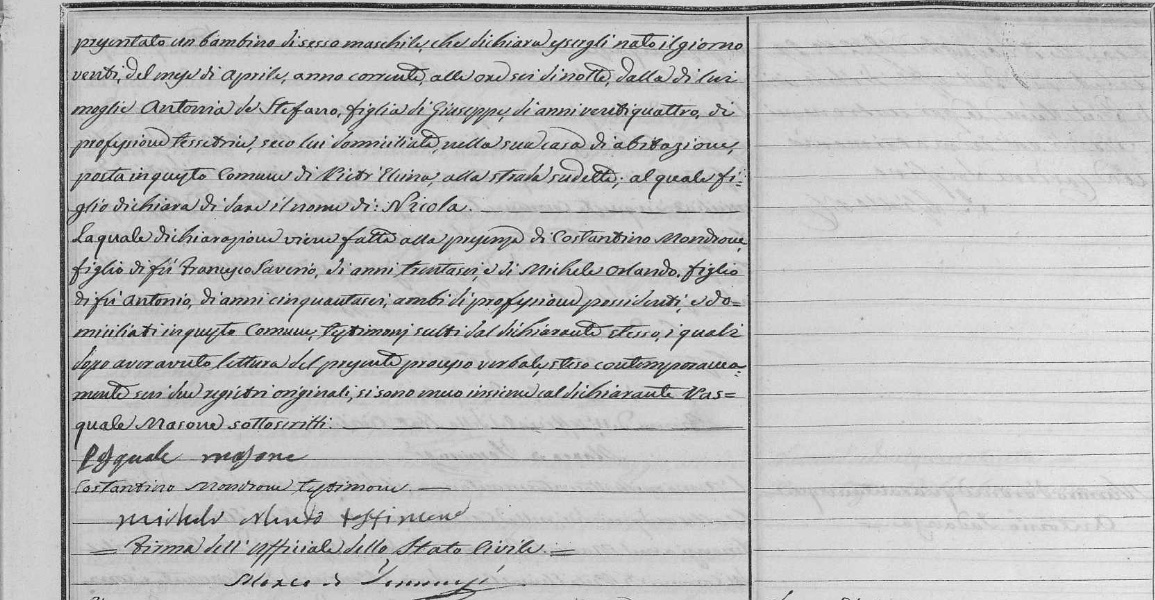 presentato un bambino di sesso maschile, che dichiara essergli nato il giorno
venti, del mese di Aprile, anno corrente, alle ore sei di notte, dalla di lui
moglie Antonia de Stefano, figlia di Giuseppe, di anni ventiquattro, di
professione tessitrice, seco lui domiciliata, nella sua casa di abitazione,
posta in questo Comune di Pietr'Elcina, alla strada sudetta; al quale fi=
glio dichiara di dare il nome di: Nicola.
La quale dichiarazione viene fatta alla presenza di Costantino Mondrone,
figlio di fù Francesco Saverio, di anni trentasei e di Michele Orlando, figlio
di fù Antonio, di anni cinquantasei, ambi di professione possidenti, e do=
miciliati in questo Comune, testimonj scelti dal dichiarante stesso, i quali
dopo aver avuto lettura del presente processo verbale, steso contemporanea=
mente sui due registri originali, si sono meco insieme col dichiarante Pas=
quale Masone sottoscritti.
Pasquale masone
Costantino Mondrone testimone
Michele Orlando testimone
= Firma dell'Officiale dello Stato Civile =
Marco